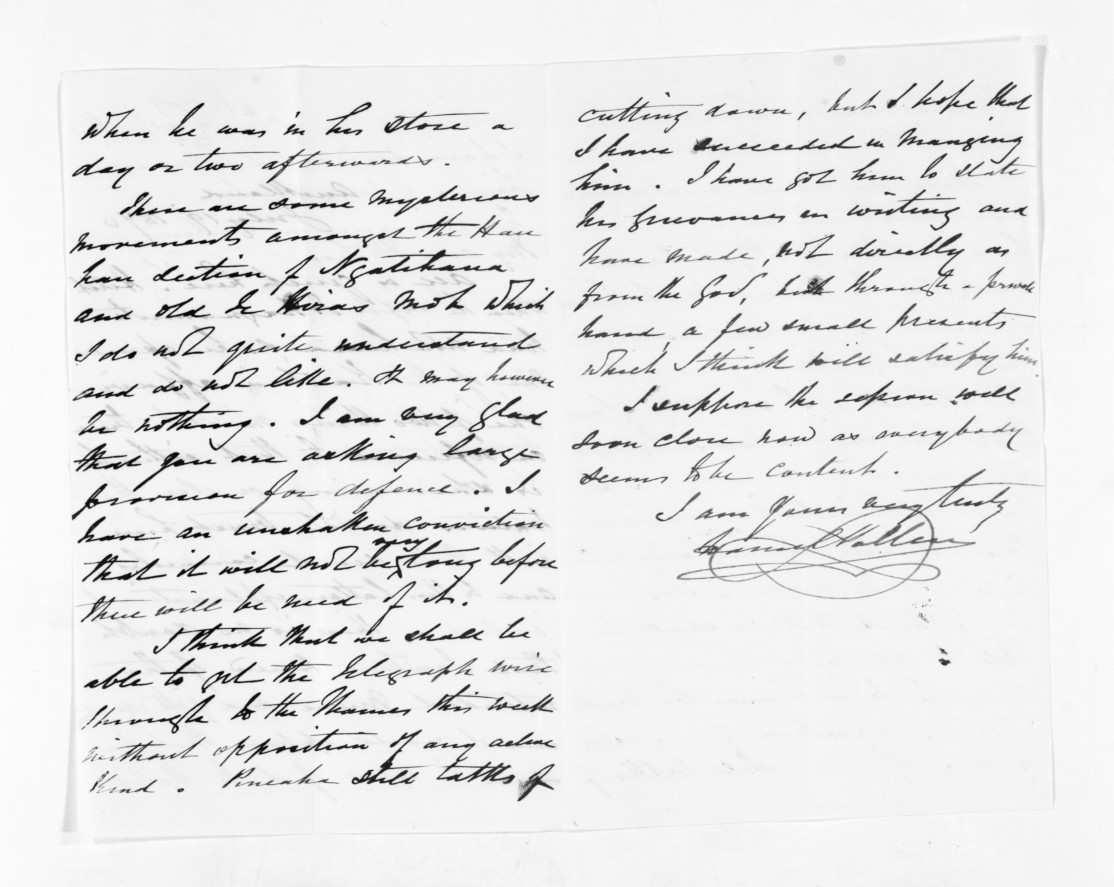 When he was in his store a
day or two afterwards.
There are some mysterious
movements amongst the Hau
hau section of Ngatihaua
and old Te Hiras Mob which
I do not quite understand
and do not like. It may however
be nothing. I am very glad
that you are asking large
provision for defence. I
have an unshaken conviction
that it will not be very long before
there will be need of it.
I think that we shall be
able to get the Telegraph wire
through to the Thames this week
without opposition of any active
kind. still talks of
cutting down, but I hope that
I have succeeded in manging
him. I have got him to state
his grievances in writing and
have made, not directly as
from the Gov, but through a private
hand, a few small presents
which I think will satisfy him.
I suppose the session will
soon close now as everybody
seems to be content.
I am Yours very truly